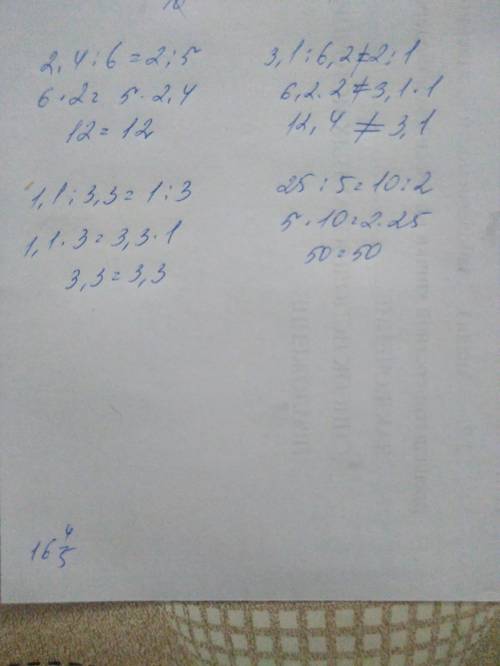 2,4:6=2:5
6·2= 5·2,4
12=12
3,1:6,2≠2:1
6,2·2≠3,1·1
12,4 ≠ 3,1
1,1:3,3=1:3
1,1·3=3,3·1
3,3=3,3
25:5=10:2
5·10=2·25
50=50
16 4/5